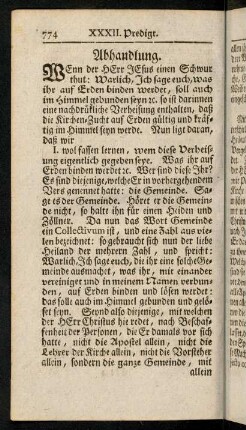 774 XXXII. Predigt.
Abhandlung.
WEnn der HErr JEsus einen Schwur
thut: Warlich, Ich sage euch, was
ihr auf Erden binden werdet, soll auch
im Himmel gebunden seyn ꝛc. so ist darinnen
eine nachdrükliche Verheisung enthalten, daß
die Kirchen-Zucht auf Erden gültig und kräf-
tig im Himmel seyn werde. Nun ligt daran,
daß wir
I. wol fassen lernen, wem diese Verheis-
sung eigentlich gegeben seye. Was ihr auf
Erden binden werdet ꝛc. Wer sind diese Ihr?
Es sind diejenige, welche Er in vorhergehendem
Vers genennet hatte: die Gemeinde. Sa-
ge es der Gemeinde. Höret er die Gemein-
de nicht, so halte ihn für einen Heiden und
Zöllner. Da nun das Wort Gemeinde
ein Collectivum ist, und eine Zahl aus vie-
len bezeichnet: so gebraucht sich nun der liebe
Heiland der mehrern Zahl, und spricht:
Warlich, Ich sage euch, die ihr eine solche Ge-
meinde ausmachet, was ihr, mit einander
vereiniget und in meinem Namen verbun-
den, auf Erden binden und lösen werdet:
das solle auch im Himmel gebunden und gelö-
set seyn. Seynd also diejenige, mit welchen
der HErr Christus hie redet, nach Beschaf-
fenheit der Personen, die Er damals vor sich
hatte, nicht die Apostel allein, nicht die
Lehrer der Kirche allein, nicht die Vorsteher
allein, sondern die ganze Gemeinde, mit
allein